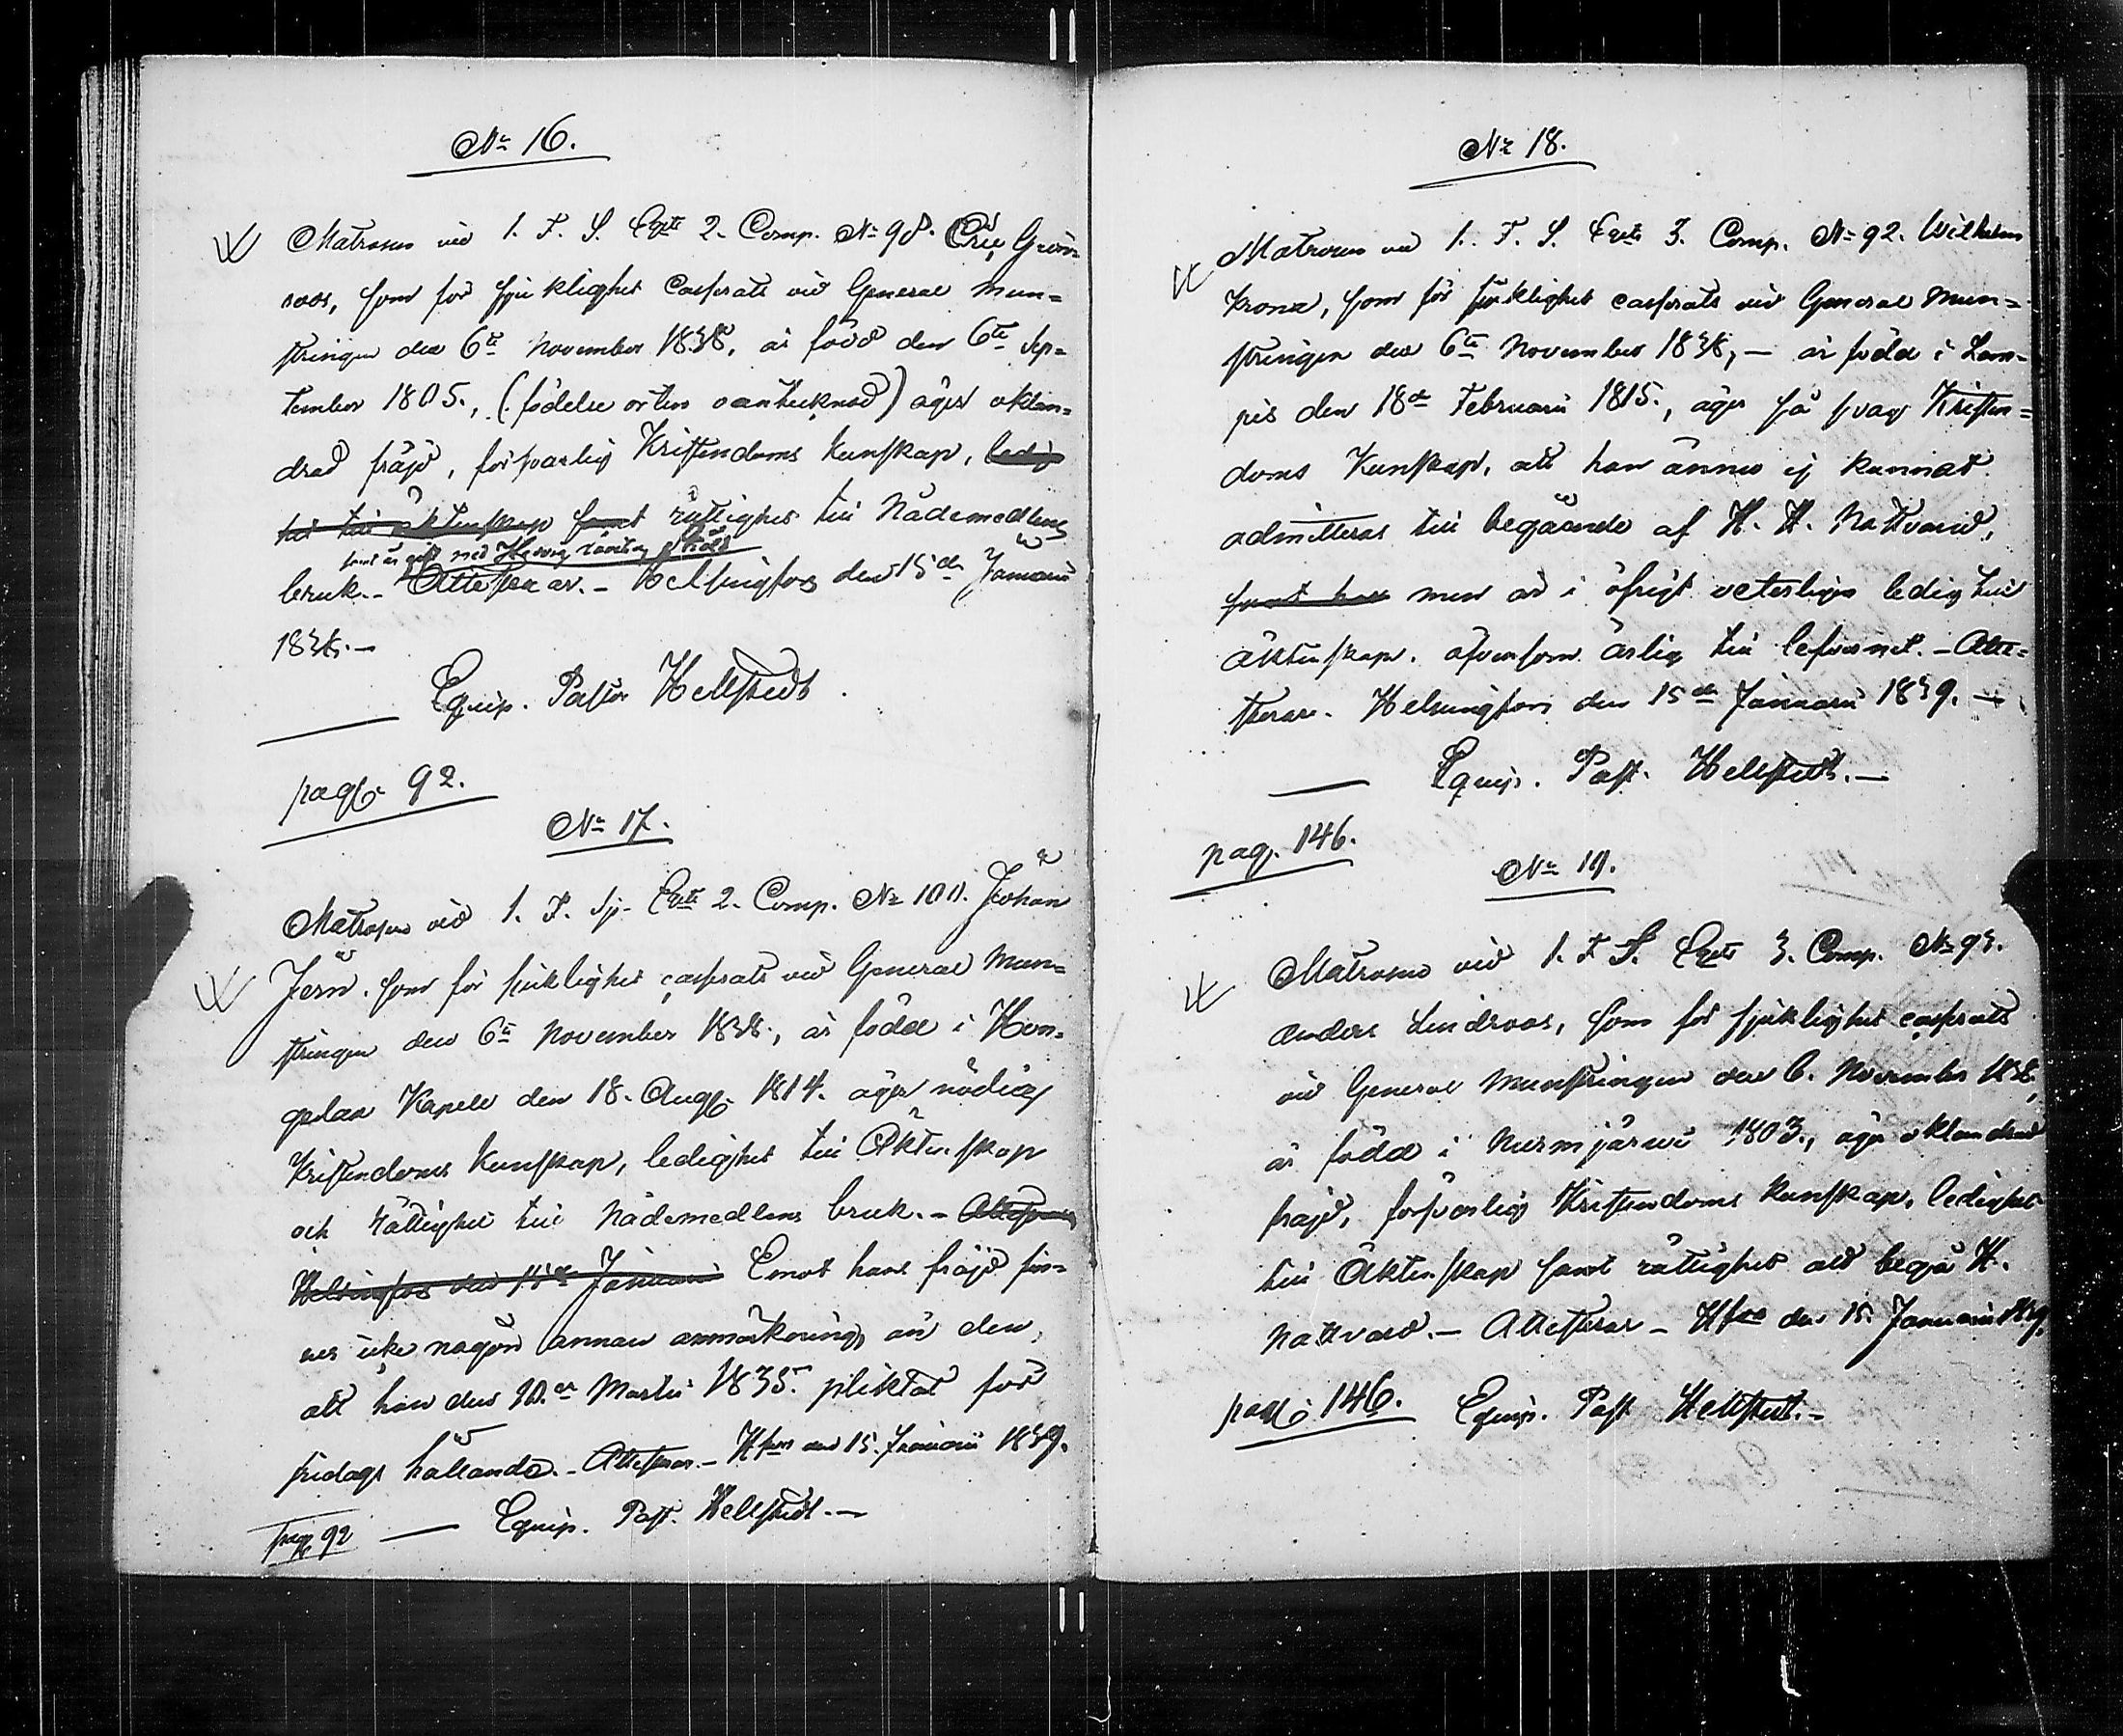 No 16.
Matrosen vid 1. F. S. Eqts 2. Comp. No 98. Eric Grön=
roos, som för sjuklighet casserats vid General Mun=
stringen den 6te November 1838, är född den 6te Sep=
tember 1805., (födelse orten oantecknad) äger oklan=
drad fräjd, försvarlig Kristendoms kunskap, ledig
het till äktenskap samt rättighet till Nådemedlens
samt är gift med Hedvig
bruk. - Attesterar. - Helsingfors den 15de Januarii
1839. -
Equip. Pastor Hellstedt.
pag. 92.
No 17.
Matrosen vid 1. F. Sj. Eqts 2. Comp. No 100. Johan
Jern, som för sjuklighet casserats vid General Mun=
stringen den 6te November 1838, är född i
Kapell den 18. Aug. 1814. äger nödig
Kristendoms kunskap, ledighet till Äktenskap
och rättighet till Nådemedlens bruk. - Attesteras
Helsingfors den 15de Januarii Emot hans fräjd fin=
nes icke någon annan anmärkning, än den,
att han den 10de Martii 1835. pliktat för
fridags hållande. - Attesteras. - Hfors den 15. Januarii 1839.
Equip. Past. Hellstedt. -
pag. 92
No 18.
Matrosen vid 1. F. S. Eqts 3. Comp. No 92. Wilhelm
Krona, som för sjuklighet casserats vid General Mun=
stringen den 6te November 1838, - är född i Lam=
pis den 18de Februarii 1815., äger så svag Kristen=
doms Kunskap, att han ännu ej kunnat
admitteras till begående af H. H. Nattvard,
samt har men är i öfrigt veterligen ledig till
äktenskap, äfvensom ärlig till lefvernet. - Atte=
steras. Helsingfors den 15de Januarii 1839. -
Equip. Past. Hellstedt. -
pag. 146.
No 19.
Matrosen vid 1. F. S. Eqts 3. Comp. No 93.
Anders Lindroos, som för sjuklighet casserats
vid General Munstringen den 6. November 1838,
är född i Nurmijärwi 1803., äger oklandrad
fräjd, försvarlig Kristendoms kunskap, ledighet
till Äktenskap samt rättighet att begå H.
Nattvard. - Attesteras - Hfors den 15. Januarii 1839.
pag. 146. Equip. Past. Hellstedt. -